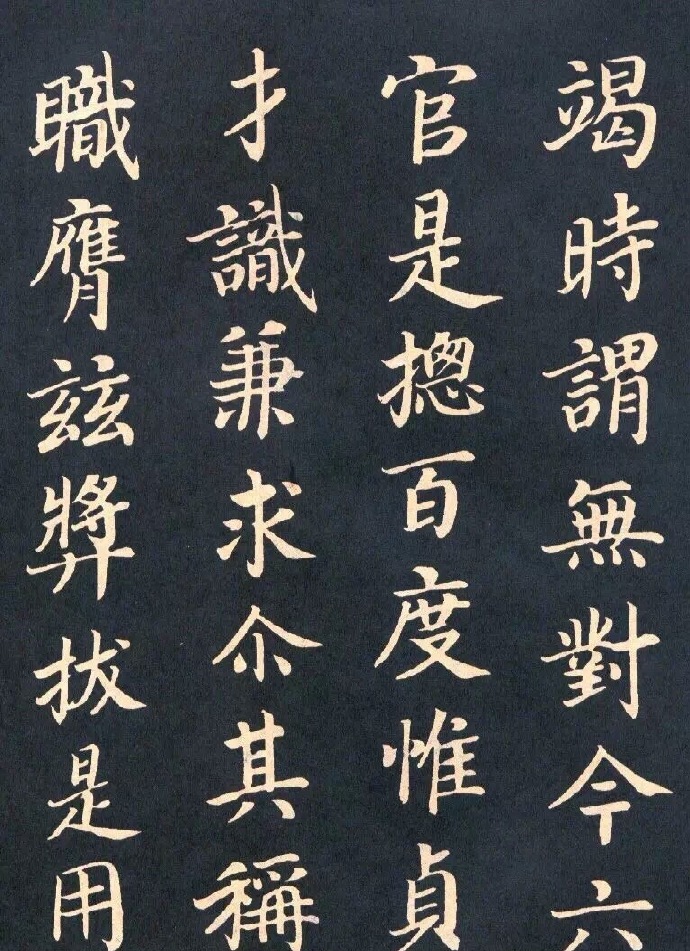 竭時謂無對今六
官是揔百度惟貞
才識兼求尒其稱
職膺茲獎拔是用